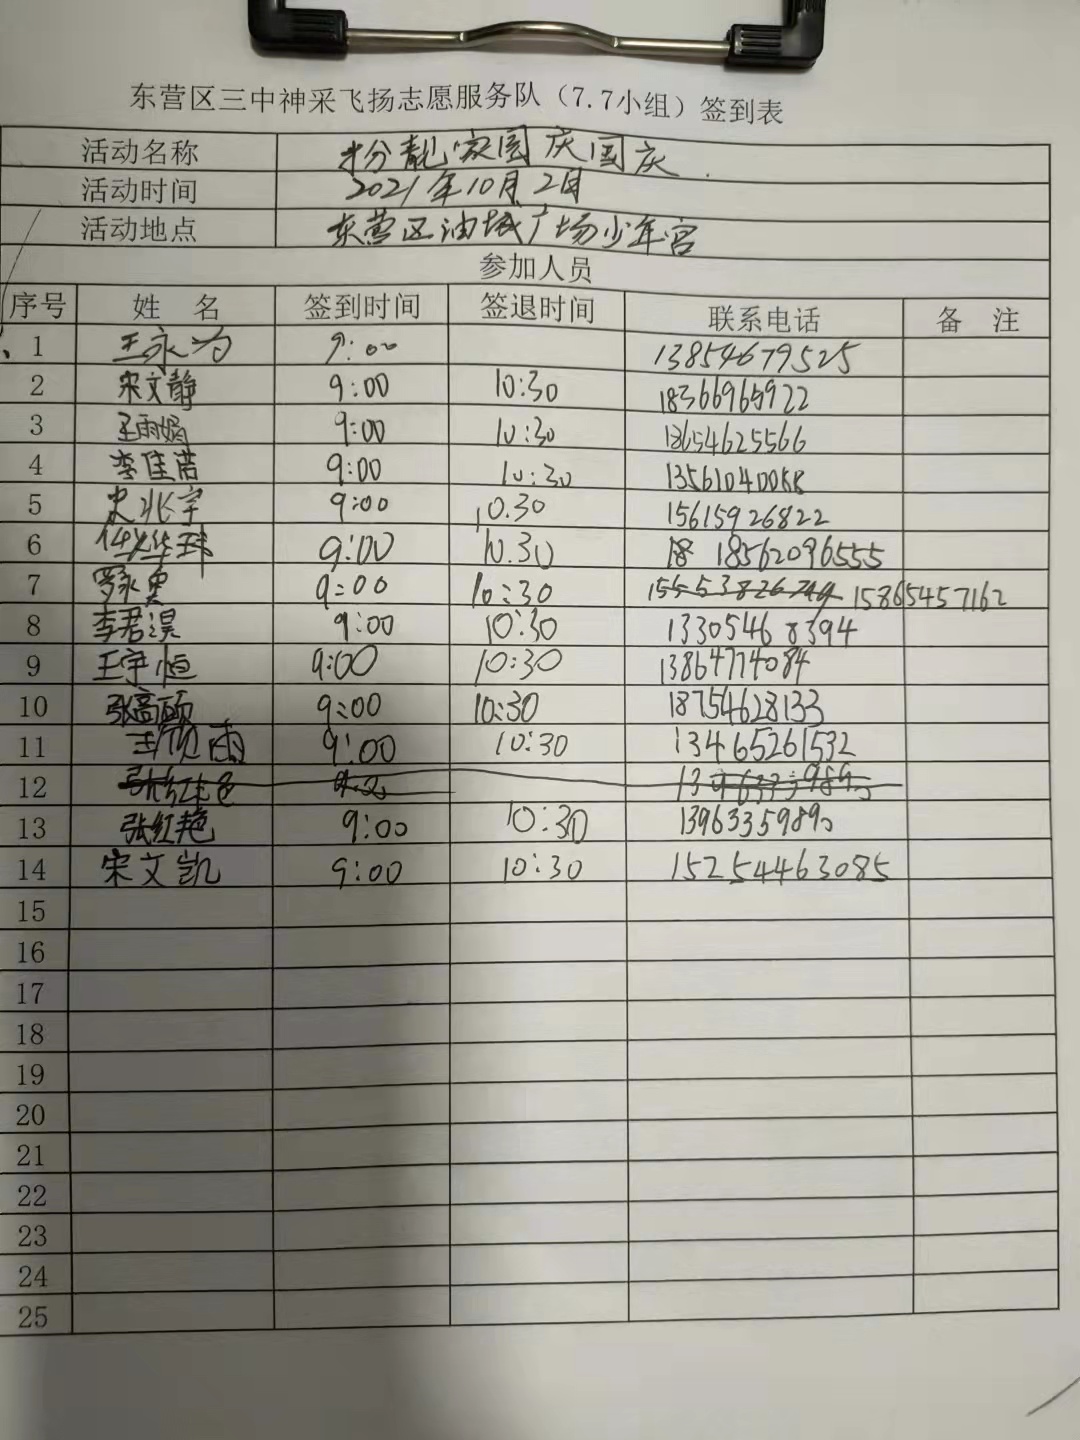 东营区三中神采飞扬志愿服务队（7.7小组）签到表
活动名称 粉靓家园 庆国庆.
活动时间 2021年10月2日
活动地点 东营区油城广场少年宫
参加人员
序号 姓 名 签到时间 签退时间 联系电话 备 注
、1 王永为 9:00 13854679525
2 宋文静 9:00 10:30 18366965922
3 王雨娟 9:00 10:30 18654625566
4 李佳芮 9:00 10:30
5 史兆宇 9:00 10.30 15615926822
6 9:00 10.30 18 18562096555
7 罗永昊 9:00 10:30 15865457162
8 李君淏 9:00 10:30 13305468394
9 王宇恒 9:00 10:30 13864774084
10 张高硕 9:00 10:30 18754628133
11 雨 9:00 10:30 13465261532
12 张红艳
13 张红艳 9:00 10:30 13963359890
14 宋文凯 9:00 10:30 15254463085
15
16
17
18
19
20
21
22
23
24
25